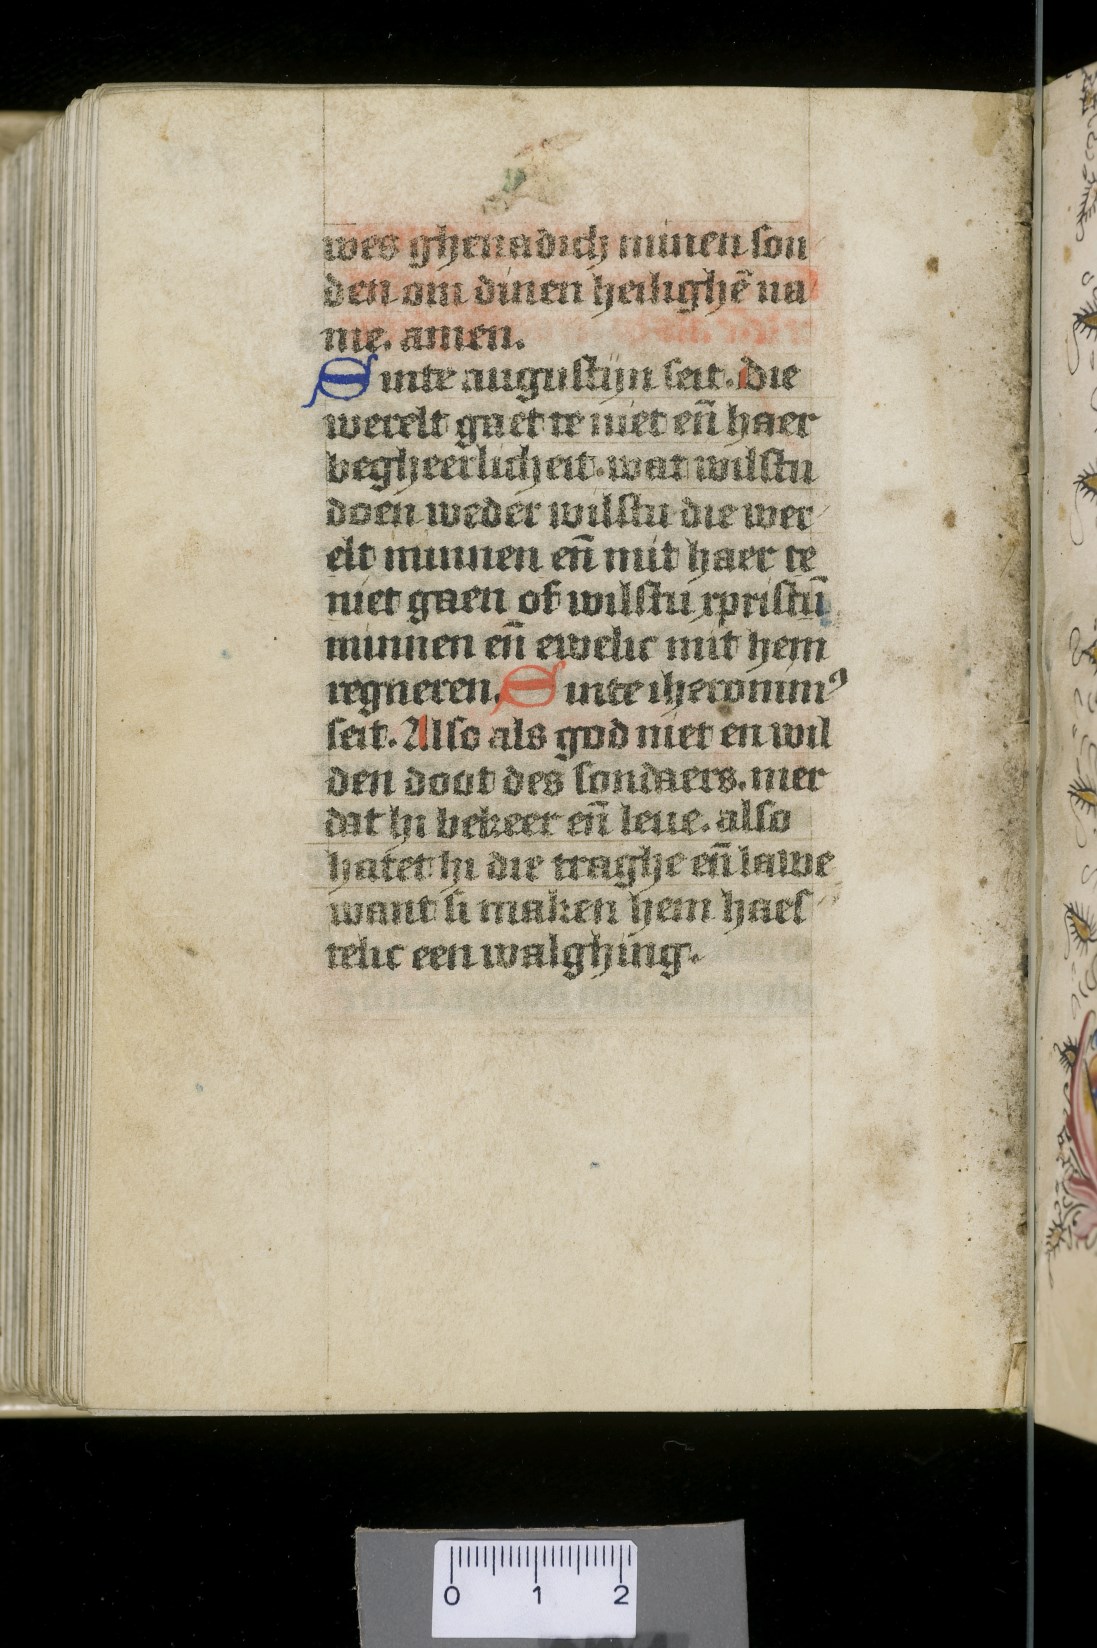 wes ghenadich minen son
den om dinen heilighē na
me. amen.
Sinte augustijn seit. Die
werelt gaet te niet en̄ haer
begheerlicheit. wat wilstu
doen weder wilstu die wer
elt minnen en̄ mit haer te
niet gaen of wilstu xpristū
minnen en̄ ewelic mit hem
regneren. Sinte iheronimꝰ
seit. Also als god niet en wil
den doot des sondaers. mer
dat hi bekeer en̄ leue. also
hatet hi die traghe en̄ lawe
want si maken hem haes
telic een walghing.
0 1 2